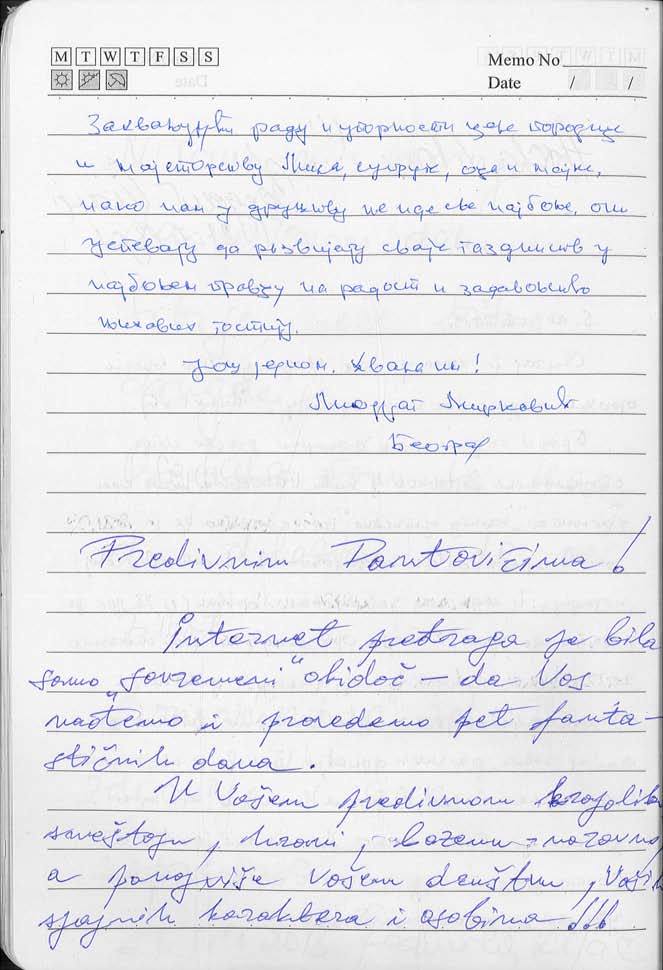 M T W T F S S
Memo No
Date / /
Захваљујући раду и упорности целе породице
и мајсторству Мила, супруге, оца и мајке,
иако нам у друштву не иде све најбоље, они
успевају да развијају своје газдинство у
најбољем правцу на радост и задовољство
њихових гостију.
Још једном. Хвала им!
Миодраг Мирковић
Београд
Predivnim Pantovićima!
Internet pretraga je bila
samo "savremeni" obidoč – da Vas
nađemo i provedemo pet fanta-
stičnih dana.
U Vašem predivnom krajoliku
smeštaju, hrani, bazenu – naravno,
a ponajviše Vašem društvu, Vaših
sjajnih karaktera i osobina!!!